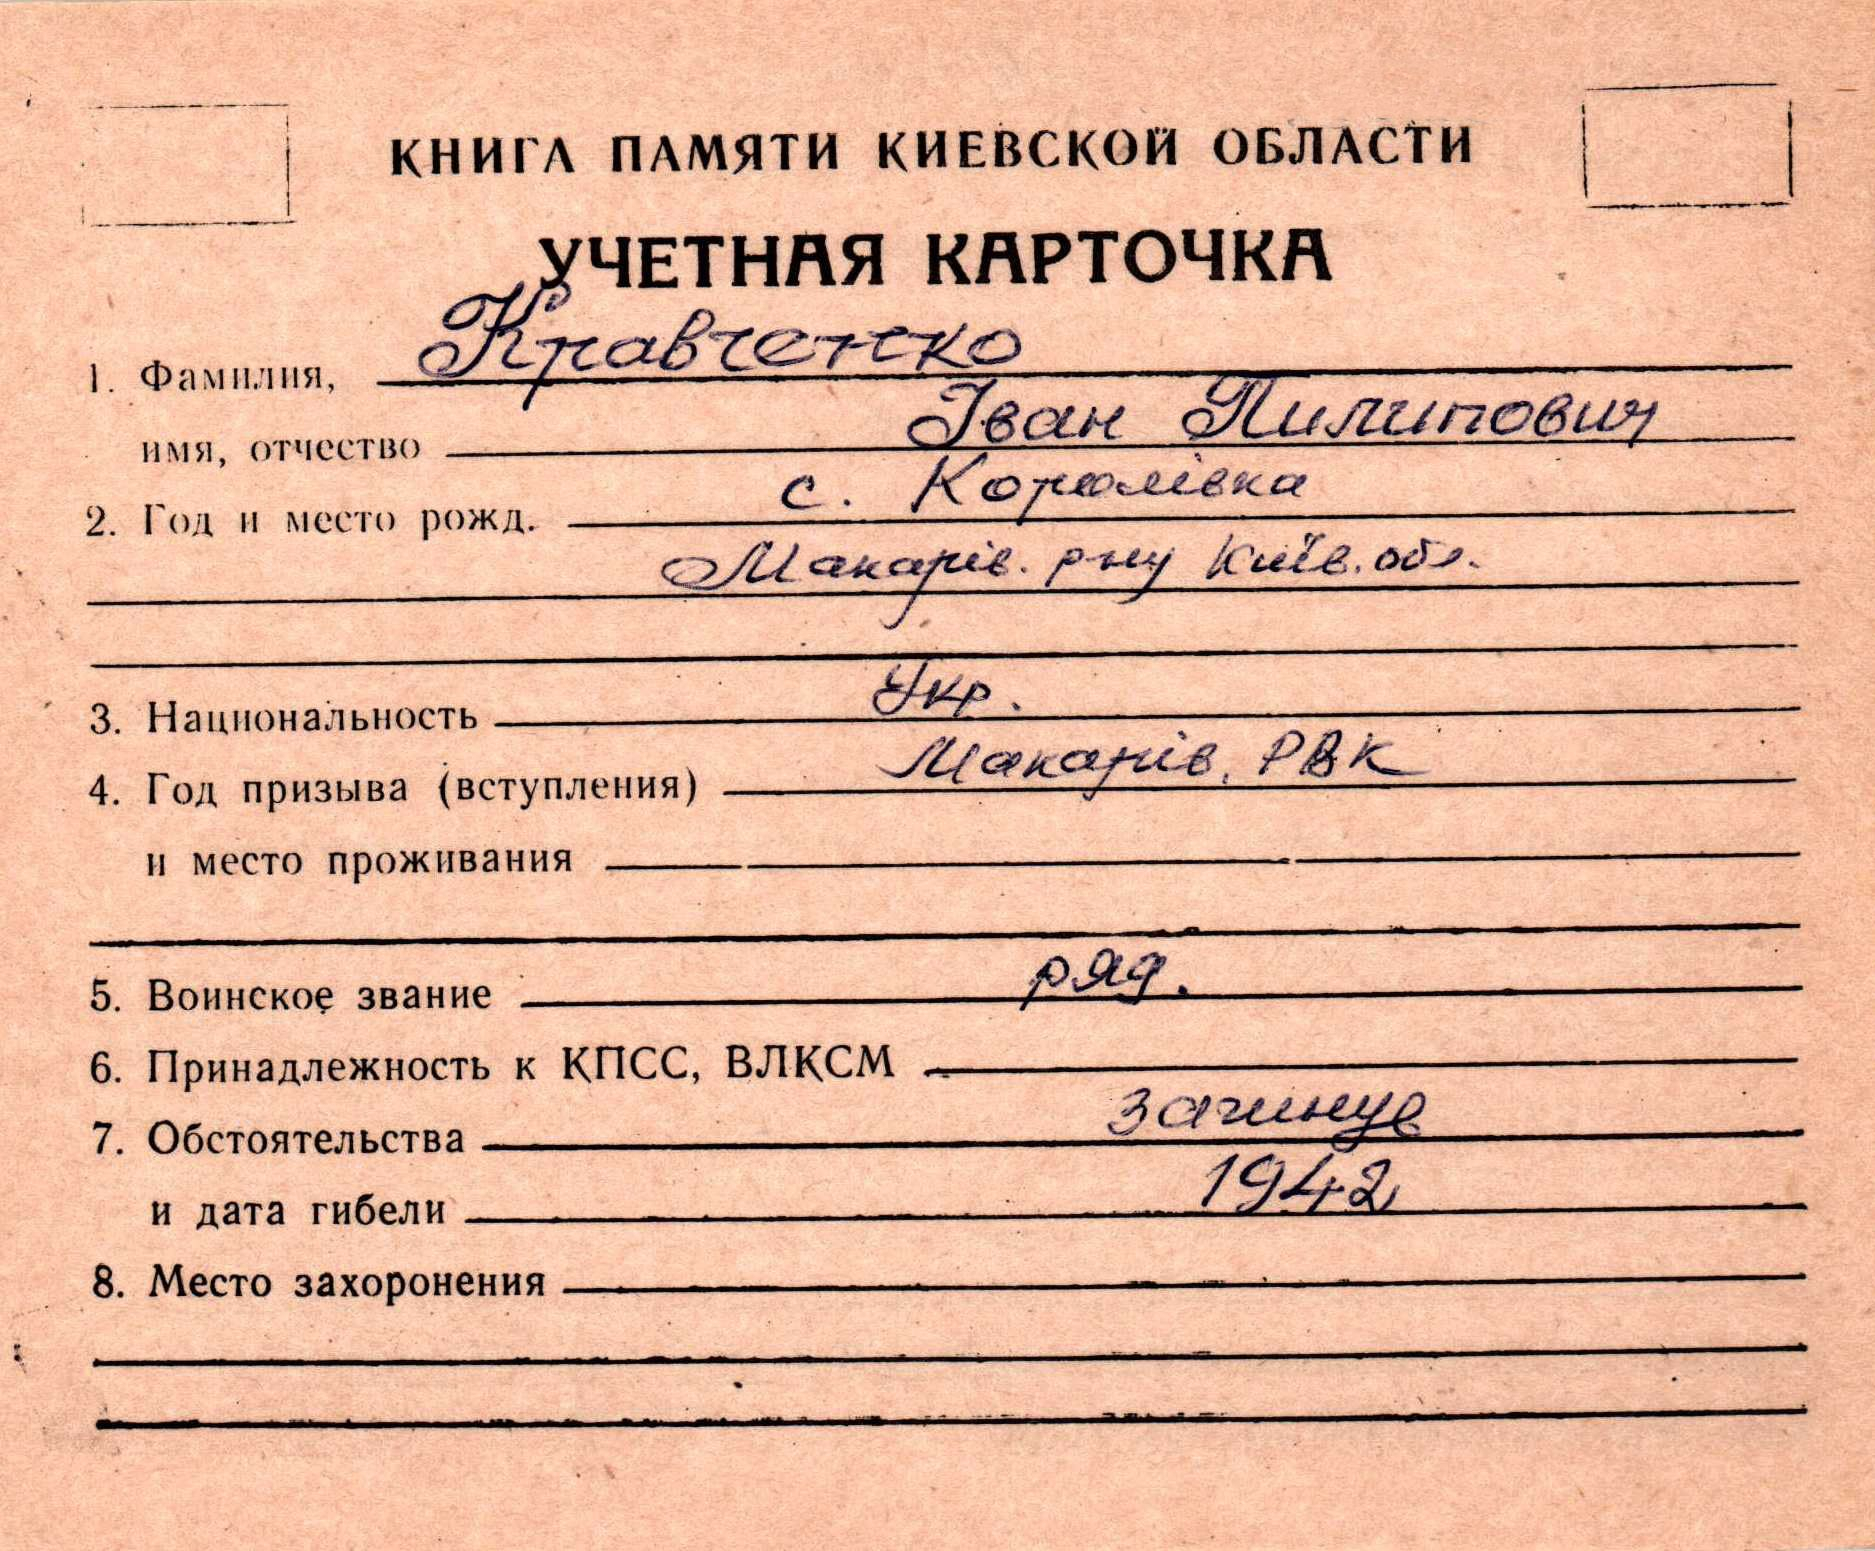 КНИГА ПАМЯТИ КИЕВСКОЙ ОБЛАСТИ
УЧЕТНАЯ КАРТОЧКА
1. Фамилия, Кравченко
имя, отчество Іван Пилипович
2. Год и место рожд. с. Королівка
Макарів. р-ну Київ. обл.
3. Национальность Укр.
4. Год призыва (вступления) Макарів. РВК
и место проживания
5. Воинское звание ряд.
6. Принадлежность к КПСС, ВЛКСМ
7. Обстоятельства загинув
и дата гибели 1942
8. Место захоронения